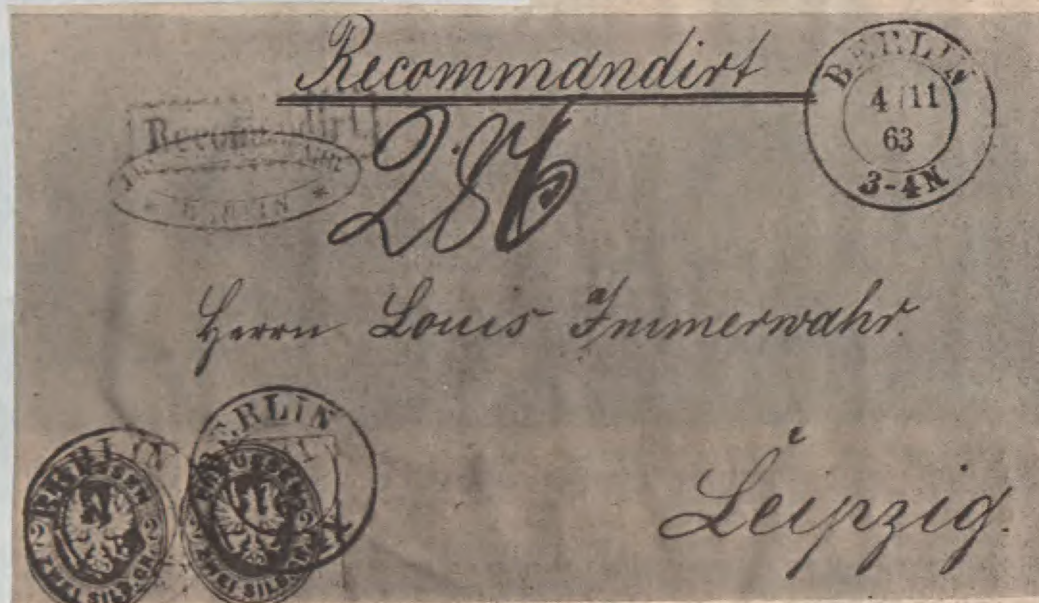 Recommandirt
BERLIN
4 11
63
3-4N
Recommandirt
BERLIN
286
Herrn Louis Immerwahr.
Leipzig.
BERLIN
PREUSSEN
2 2
ZWEI SILB. GR.
BERLIN
PREUSSEN
2
ZWEI SILB. GR.